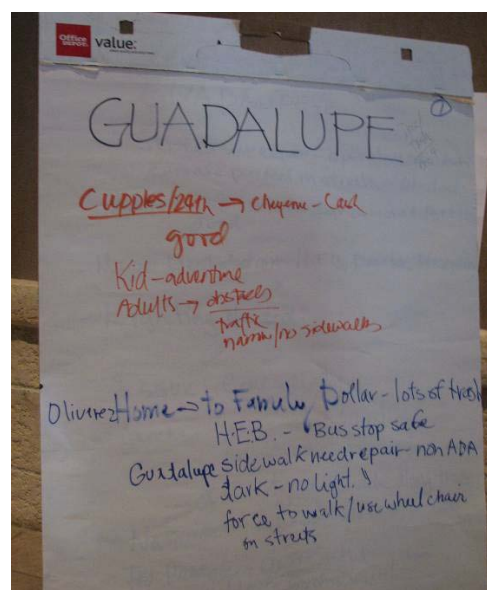 Office DEPOT value:
1
GUADALUPE
Cupples/24th → Cheyene - Caul
good
Kid-adventure
Adults → obstacles
traffic
narrow/no sidewalks
Oliverez Home → to Family Dollar - lots of trash
H.E.B. - Bus stop safe
Guadalupe sidewalk need repair - non ADA
dark - no light.
force to walk/use wheel chair
on streets